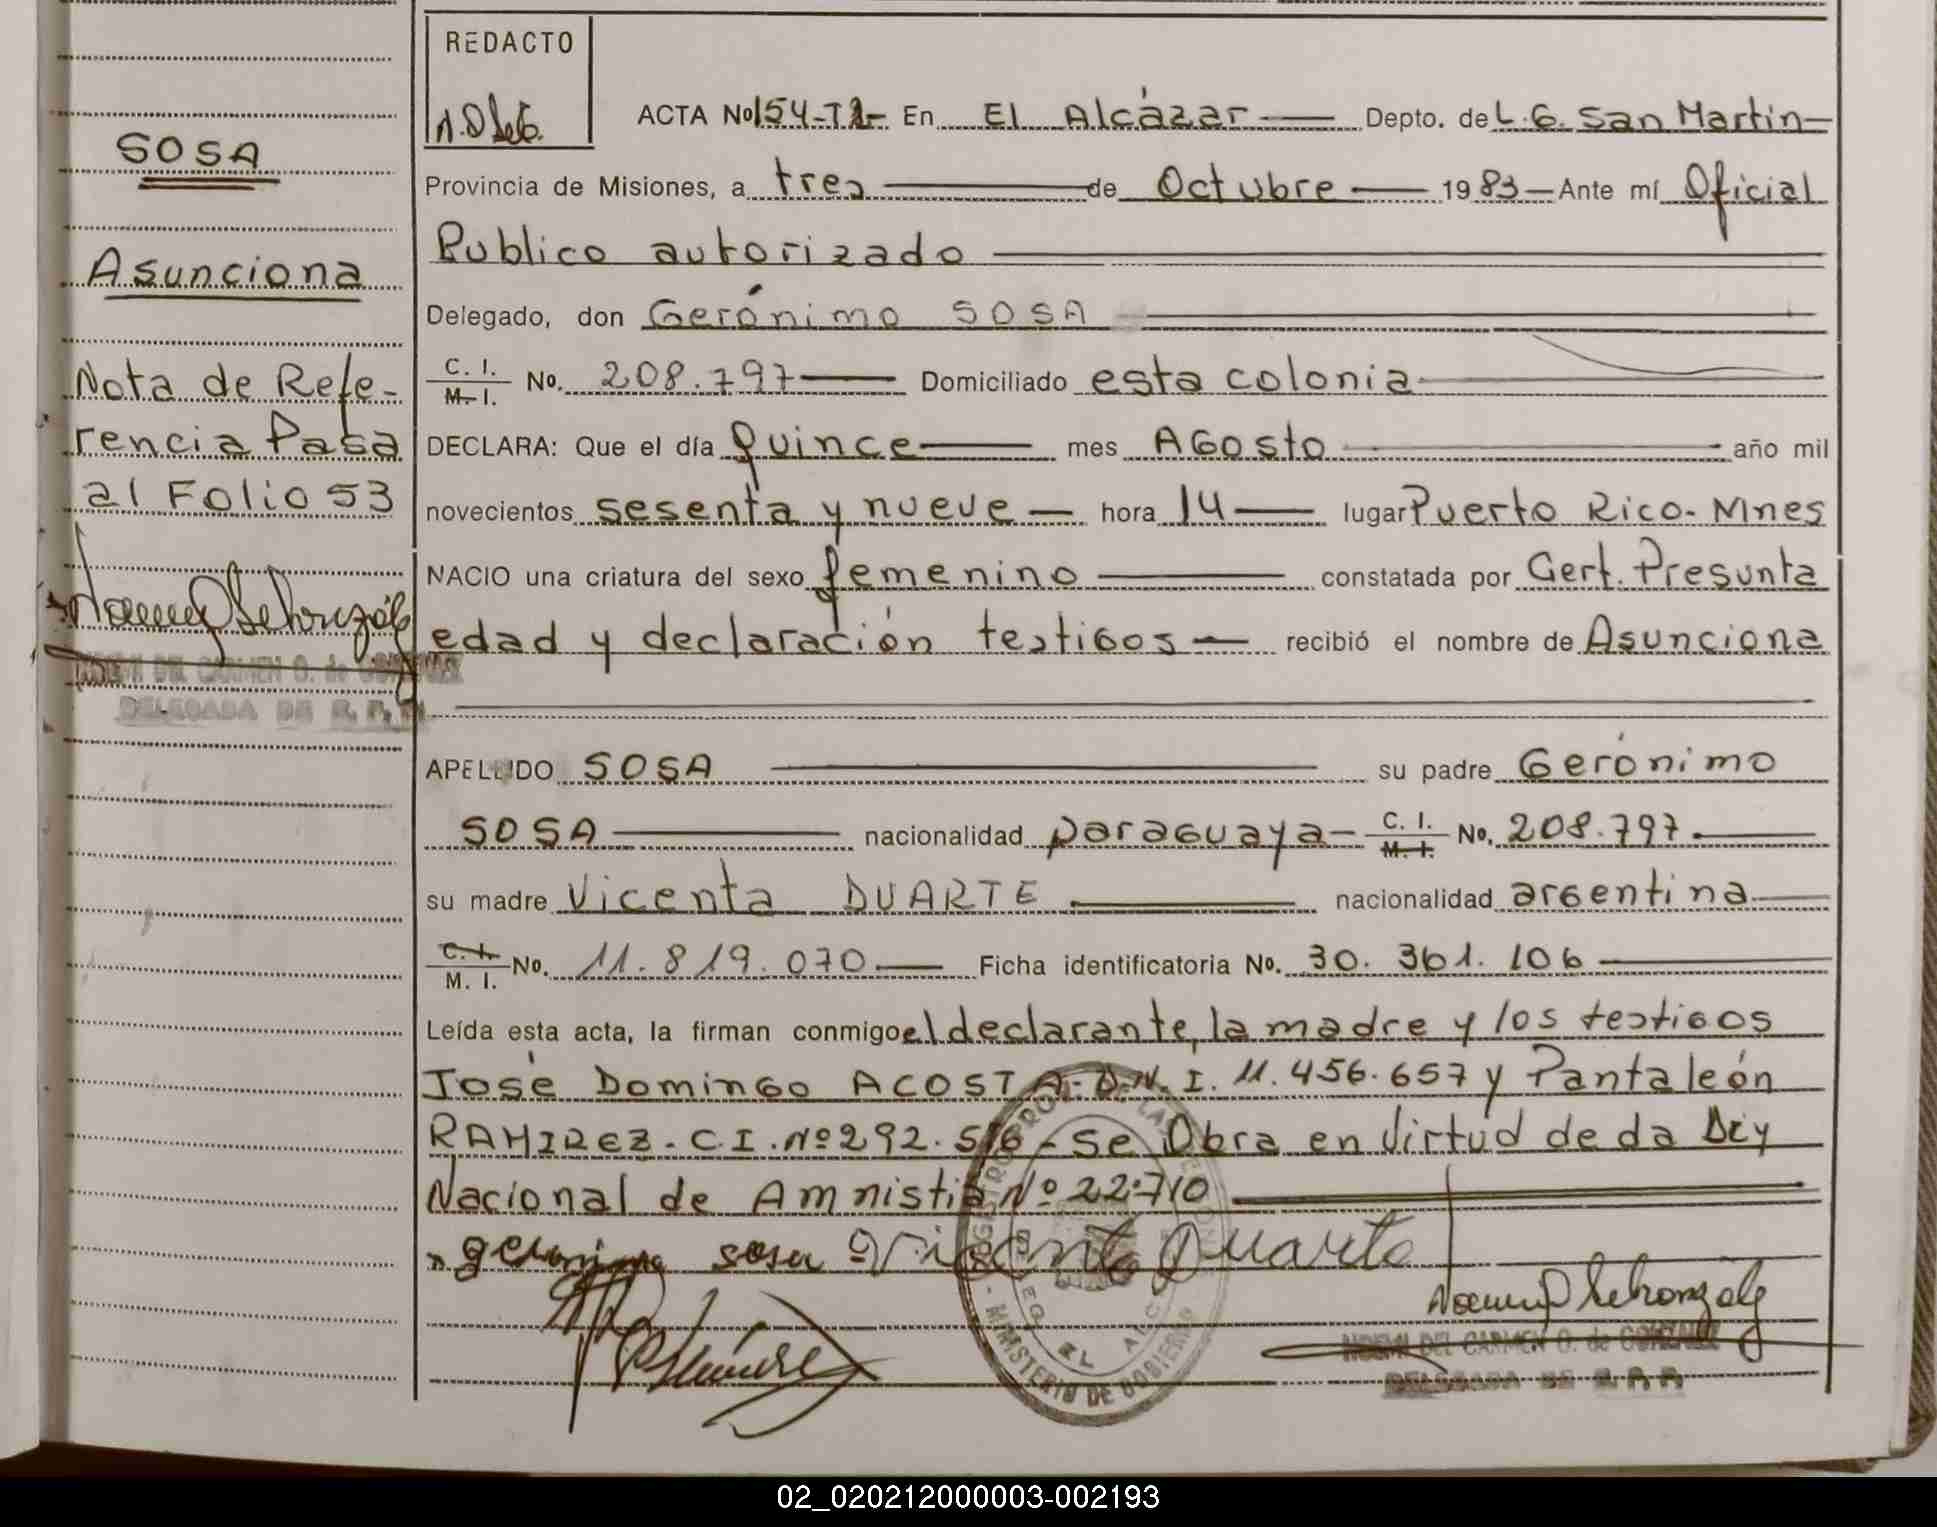 SOSA
Asunciona
Nota de Refe-
rencia Pasa
al Folio 53
NOEMI DEL CARMEN O. de GONZALEZ
DELEGADA DE R. P. P.
REDACTO
ACTA No 154-T2- En El Alcázar Depto. de L. G. San Martin
Provincia de Misiones, a tres de Octubre 1983 Ante mí Oficial
Publico autorizado
Delegado, don Gerónimo SOSA
C. I. M. I. No. 208.797 Domiciliado esta colonia
DECLARA: Que el día quince mes Agosto año mil
novecientos sesenta y nueve hora 14 lugar Puerto Rico. Mnes
NACIO una criatura del sexo femenino constatada por Cert. Presunta
edad y declaración testigos recibió el nombre de Asunciona
APELLIDO SOSA su padre Gerónimo
SOSA nacionalidad paraguaya C. I. M. I. No. 208.797
su madre Vicenta DUARTE nacionalidad argentina
C. I. M. I. No. 11.819.070 Ficha identificatoria No. 30.361.106
Leída esta acta, la firman conmigo el declarante, la madre y los testigos
José Domingo ACOSTA- D.N.I. 11.456.657 y Pantaleón
RAMIREZ. C.I. Nº 292.516 - Se Obra en Virtud de da Ley
Nacional de Amnistia Nº 22.710
geronimo sosa Vicenta Duarte
MINISTERIO DE GOBIERNO
EL ALCAZAR
NOEMI DEL CARMEN O. de GONZALEZ
DELEGADA DE R. P. P.
02_020212000003-002193